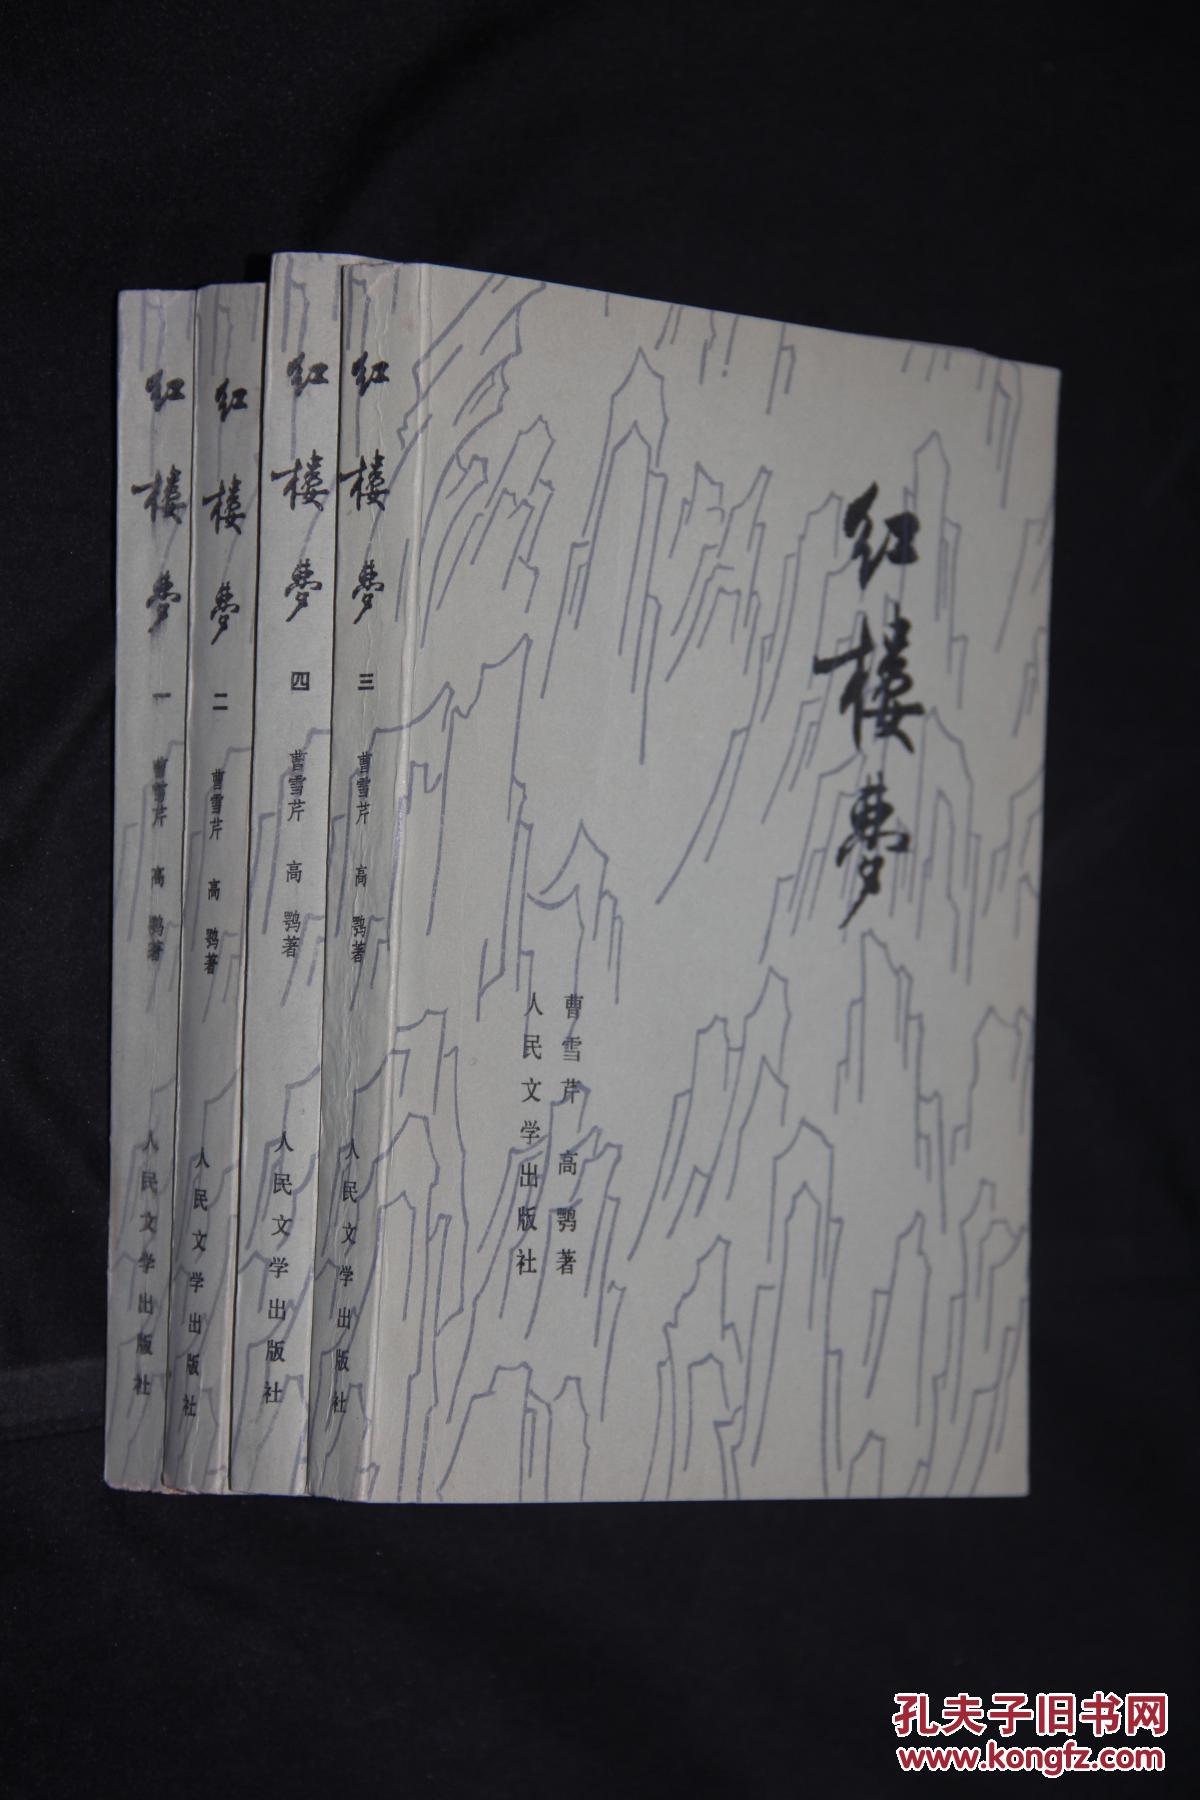 红楼梦 一 曹雪芹 高鹗著 人民文学出版社
红楼梦 二 曹雪芹 高鹗著 人民文学出版社
红楼梦 四 曹雪芹 高鹗著 人民文学出版社
红楼梦 三 曹雪芹 高鹗著 人民文学出版社
红楼梦
曹雪芹 高鹗著
人民文学出版社
孔夫子旧书网
www.kongfz.com